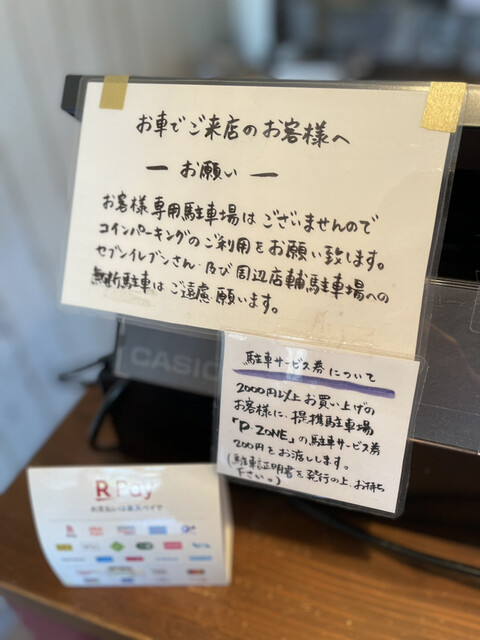 お車でご来店のお客様へ
ー お願い ー
お客様専用駐車場はございませんので
コインパーキングのご利用をお願い致します。
セブンイレブンさん・及び周辺店輔駐車場への
無断駐車はご遠慮願います。
CASIO
駐車サービス券について
2000円以上お買い上げの
お客様に、提携駐車場
「P.ZONE」の駐車サービス券
200円をお渡しします。
(駐車証明書を発行の上、お持ち
下さい。)
R Pay
お支払いは楽天ペイで